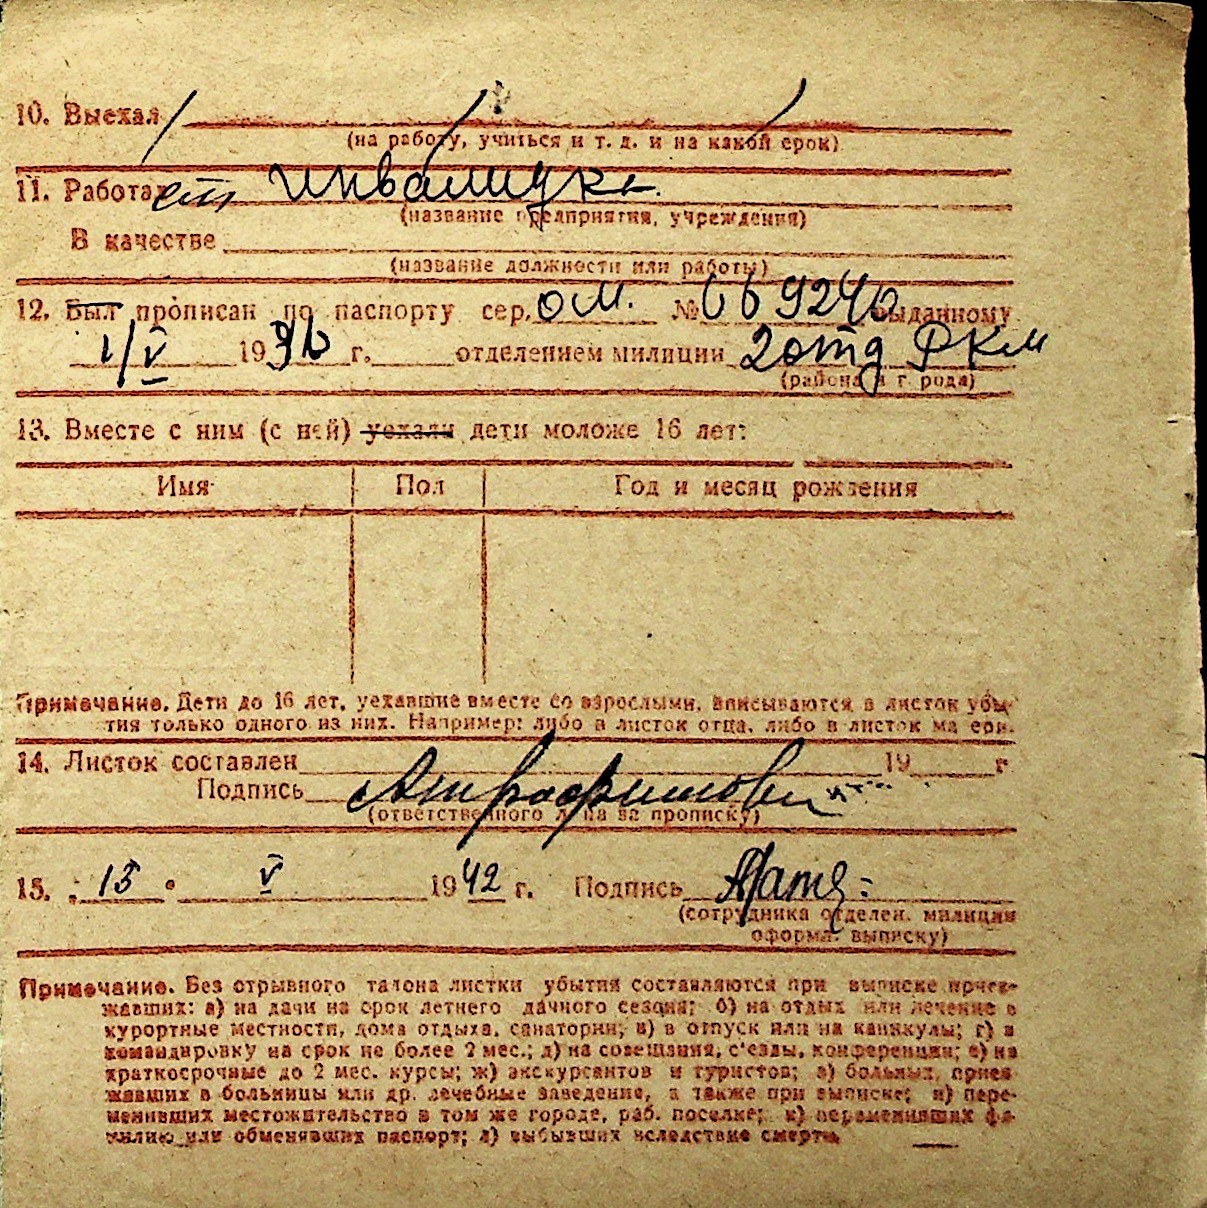 10. Выехал
(на работу, учиться и т. д. и на какой срок)
11. Работает инвалидка.
(название предприятия, учреждения)
В качестве
(название должности или работы)
12. Был прописан по паспорту сер. ОМ. № 669240 выданному
1/V 1936 г. отделением милиции 2 отд РКМ
(района и города)
13. Вместе с ним (с ней) уехали дети моложе 16 лет:
Имя Пол Год и месяц рождения
Примечание. Дети до 16 лет, уехавшие вместе со взрослыми, вписываются в листок убы-
тия только одного из них. Например: либо в листок отца, либо в листок матери.
14. Листок составлен 19 г
Подпись
(ответственного лица за прописку)
15. 15 V 1942 г. Подпись
(сотрудника отделен. милиции
оформл. выписку)
Примечание. Без отрывного талона листки убытия составляются при выписке приез-
жавших: а) на дачи на срок летнего дачного сезона; б) на отдых или лечение в
курортные местности, дома отдыха, санатории; в) в отпуск или на каникулы; г) в
командировку на срок не более 2 мес.; д) на совещания, с'езды, конференции; е) на
краткосрочные до 2 мес. курсы; ж) экскурсантов и туристов; з) больных, приез-
жавших в больницы или др. лечебные заведение, а также при выписке; и) пере-
менивших местожительство в том же городе, раб. поселке; к) переменивших фа-
милию или обменявших паспорт; л) выбывших вследствие смерти.